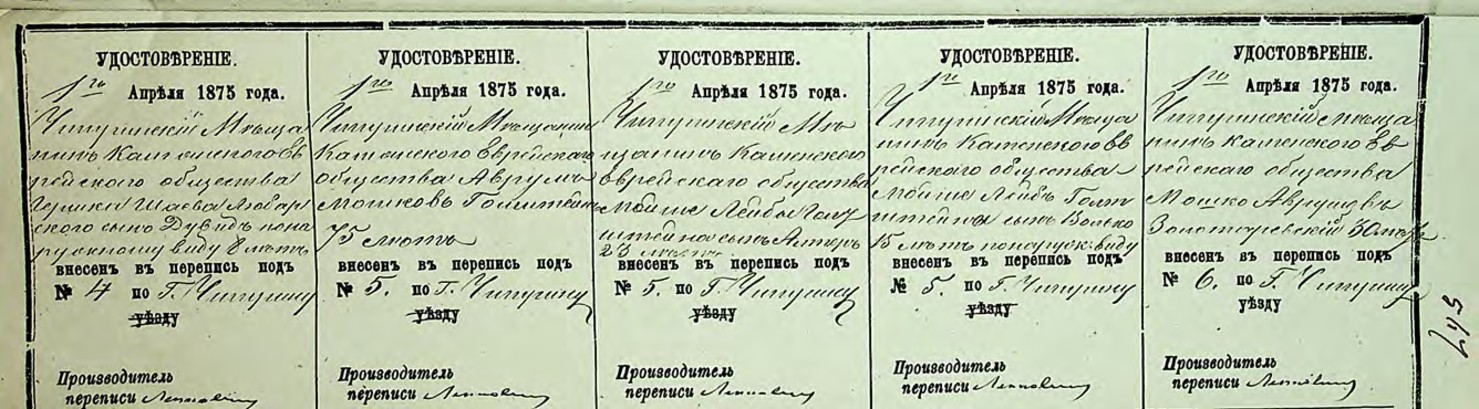 УДОСТОВѢРЕНІЕ.
1го Апрѣля 1875 года.
Чигиринскій Мѣща
нинъ Каменского Ев
рейскаго общества
Шаева
ского сынъ Дувидъ по на
ружному виду 8 лѣтъ
внесенъ въ перепись подъ
№ 4 по Г. Чигирину
уѣзду
Производитель
переписи
УДОСТОВѢРЕНІЕ.
1го Апрѣля 1875 года.
Чигиринскій Мѣщанинъ
Каменского Еврейскаго
общества Аврумъ
Мошковъ
75 лѣтъ
внесенъ въ перепись подъ
№ 5. по Г. Чигирину
уѣзду
Производитель
переписи
УДОСТОВѢРЕНІЕ.
1го Апрѣля 1875 года.
Чигиринскій Мѣ
щанинъ Каменского
Еврейскаго общества
Мойше Лейбы Гол
штейна сынъ Алтеръ
23 лѣтъ
внесенъ въ перепись подъ
№ 5. по Г. Чигирину
уѣзду
Производитель
переписи
УДОСТОВѢРЕНІЕ.
1го Апрѣля 1875 года.
Чигиринскій Мѣща
нинъ Каменского Ев
рейскаго общества
Мойше Лейбъ Голт
штейна сынъ Волько
15 лѣтъ виду
внесенъ въ перепись подъ
№ 5. по Г. Чигирину
уѣзду
Производитель
переписи
УДОСТОВѢРЕНІЕ.
1го Апрѣля 1875 года.
Чигиринскій мѣща
нинъ Каменского Ев
рейскаго общества
Мошко Аврумовъ
30 лѣтъ
внесенъ въ перепись подъ
№ 6. по Г. Чигирину
уѣзду
Производитель
переписи